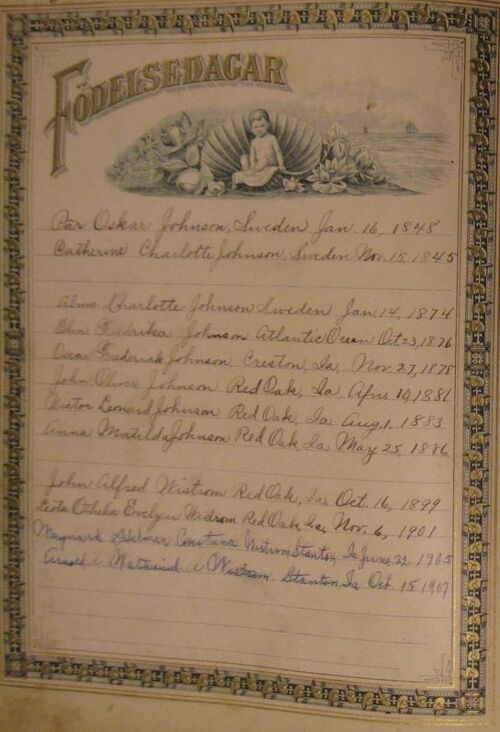 FÖDELSEDAGAR
Pär Oskar Johnson, Sweden Jan. 16, 1848
Catherine Charlotte Johnson, Sweden Nov. 15 1845
Alma Charlotte Johnson Sweden Jan 14, 1874
Fredrika Johnson Atlantic Ocean Oct 23, 1876
Oscar Frederick Johnson Creston, Ia, Nov. 27, 1878
John Oliver Johnson Red Oak, Ia Apr. 19, 1881
Victor Leonard Johnson Red Oak, Ia Aug 1, 1883
Anna Matilda Johnson Red Oak Ia May 25, 1886
John Alfred Wistrom Red Oak, Ia, Oct. 16, 1899
Leota Othelia Evelyn Wistrom Red Oak Ia, Nov. 6, 1901
Maynard Wistrom Stanton Ia June 22 1905
Wistrom, Stanton Ia Oct. 15 1907